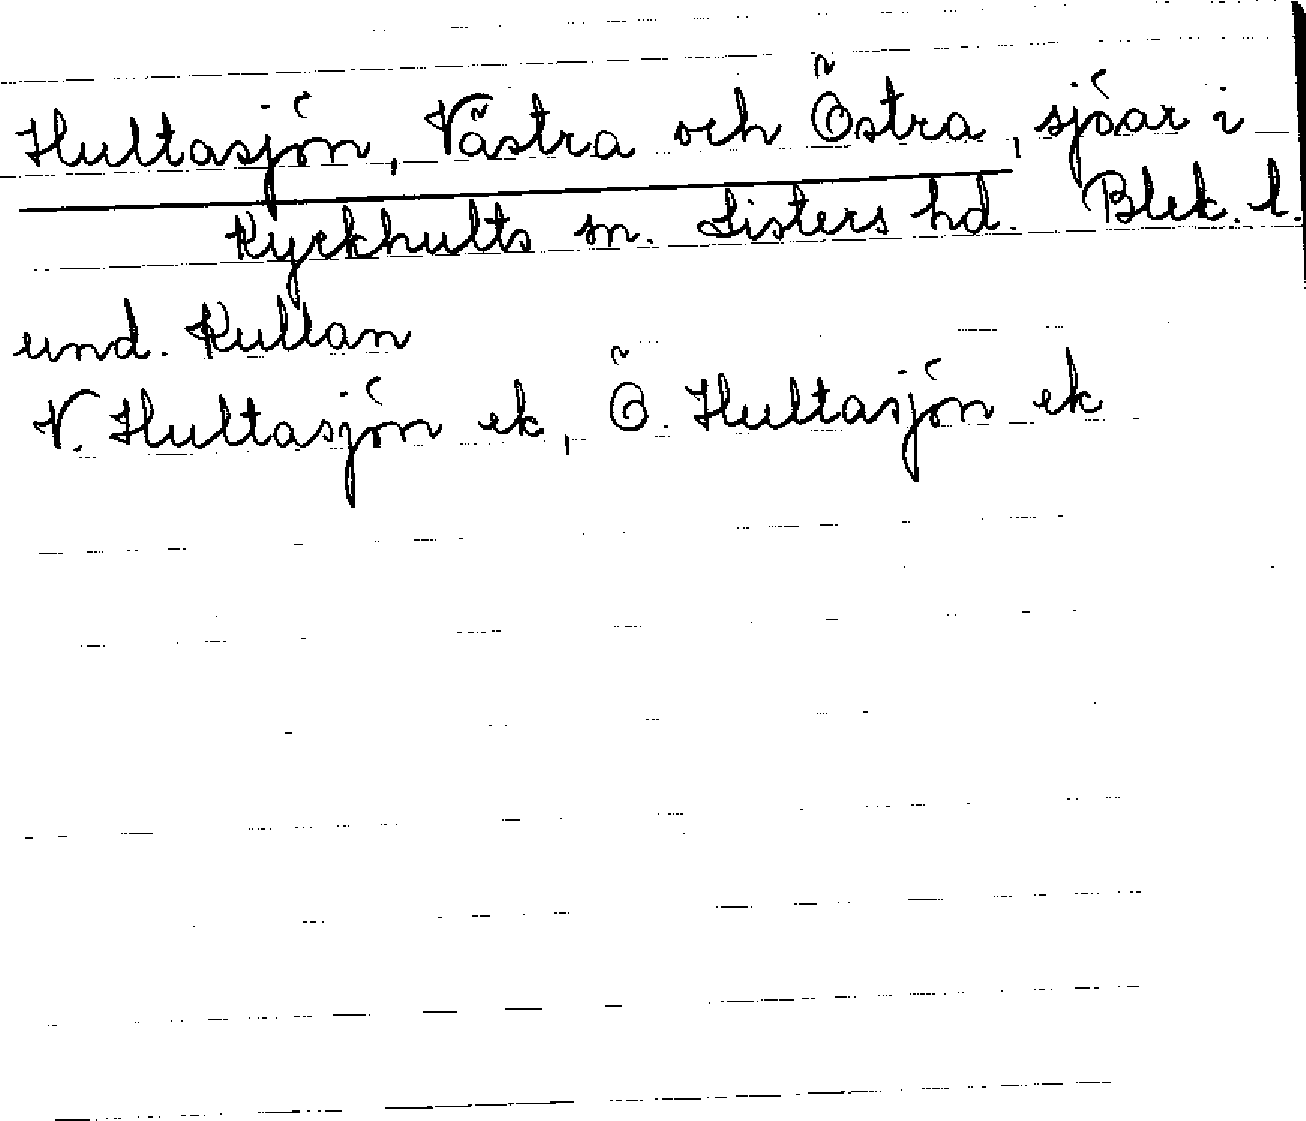 Hultasjön, Västra och Östra, sjöar i
Kyrkhults sn. Listers hd. Blek. l.
und. Kullan
V. Hultasjön ek, Ö. Hultasjön ek